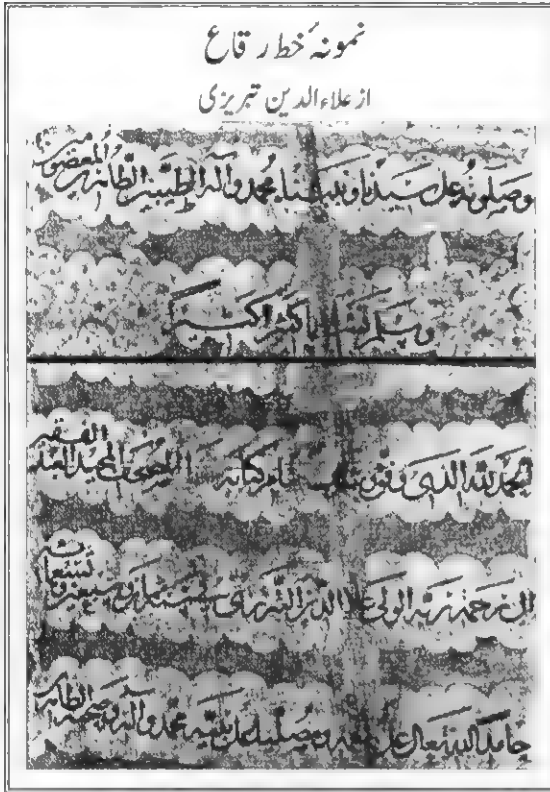 نمونۂ خط رقاع
از علاء الدین تبریزی
وصلوته علی سیدنا ونبینا محمد وآله الطیبین الطاهرین المعصومین
وسلم تسلیما کثیرا کثیرا
الحمد لله الذی وفق کتابه المصحف المجید الفقیر
الی رحمة ربه الولی علاء الدین التبریزی سبعین وتسعمائه
حامدا لله تعالی علی نعمه ومصلیا علی نبیه محمد وآله وصحبه الطاهرین